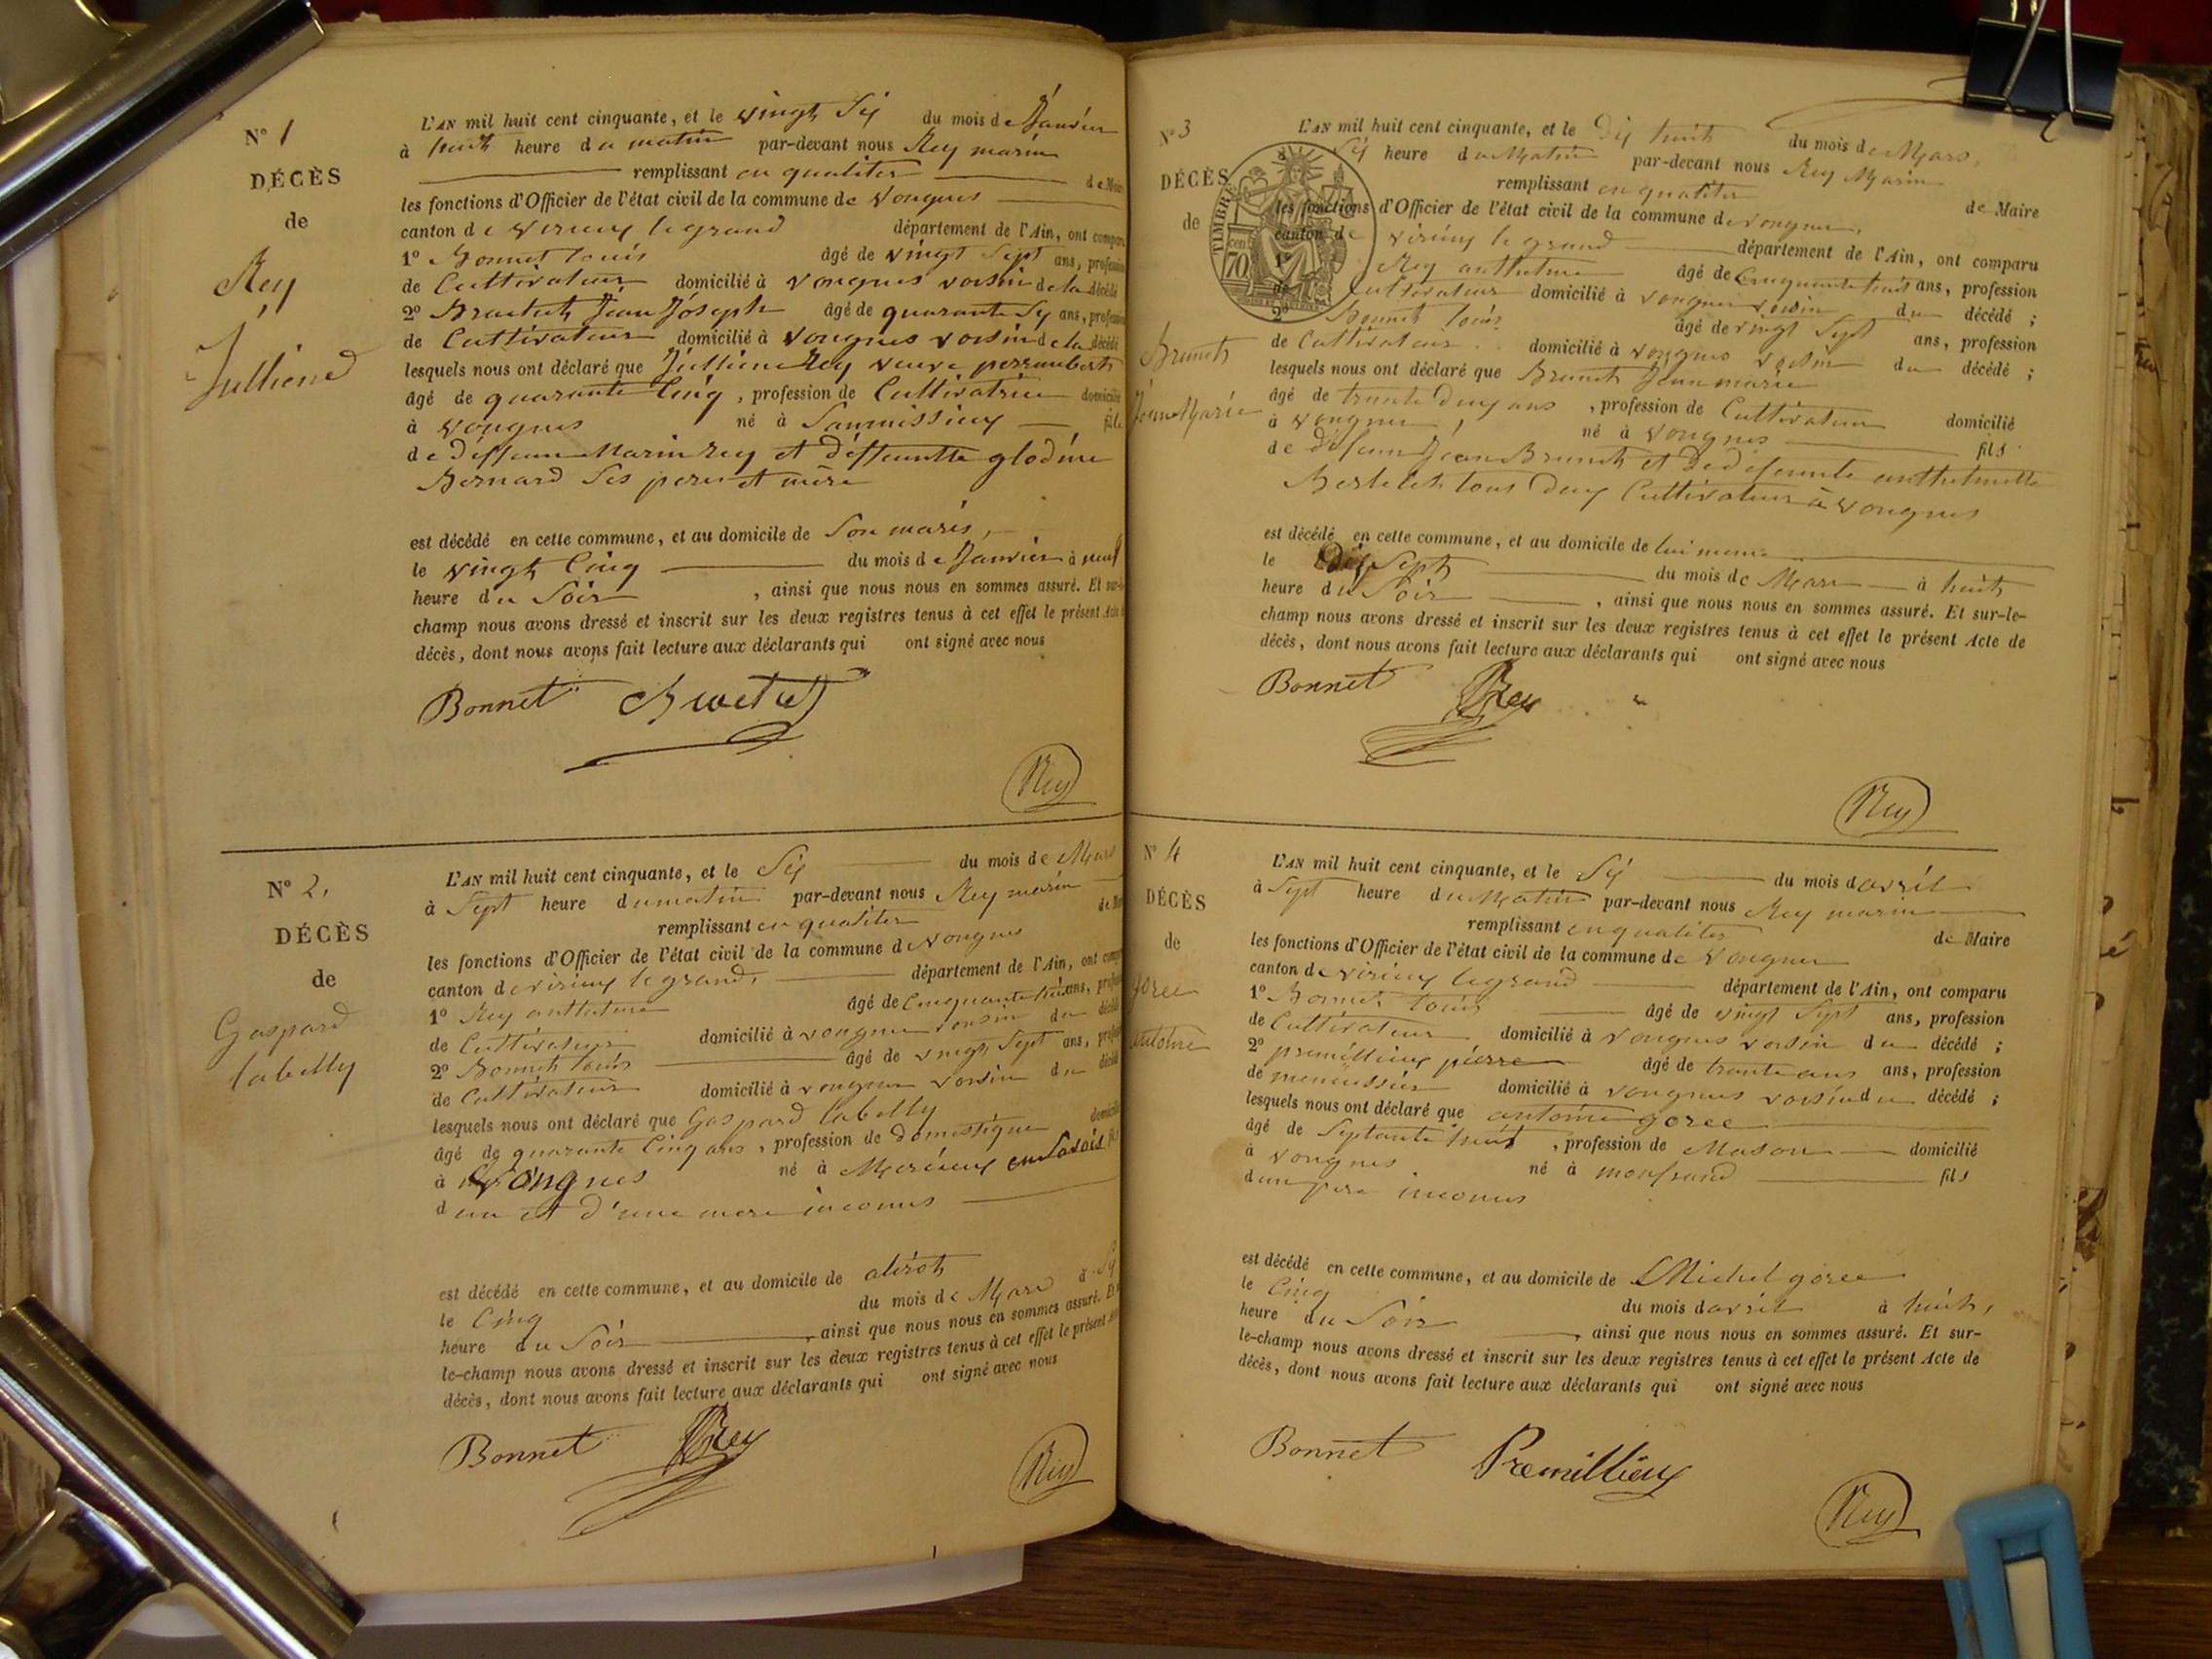 N° 1
DÉCÈS
de
Rey
Julliene
L'AN mil huit cent cinquante, et le vingt Six du mois de Janvier
à huit heure du matin par-devant nous Rey marin
remplissant en qualiter de Maire
les fonctions d'Officier de l'état civil de la commune de Vongnes
canton de virieux le grand département de l'Ain, ont comparu
1° Bonnet Louis âgé de vingt Sept ans, profession
de Cultivateur domicilié à vongnes voisin de la décédé
2° Jean Joseph âgé de quarante Six ans, profession
de Cultivateur domicilié à vongnes voisin de la décédé
lesquels nous ont déclaré que Julliene Rey veuve
âgé de quarante Cinq, profession de Cultivatrice domicilié
à vongnes né à fille
de deffeun Marin Rey et deffeuntte glodine
Bernard Ses pere et mère
est décédé en cette commune, et au domicile de Son maris,
le vingt Cinq du mois de Janvier à neuf
heure du Soir, ainsi que nous nous en sommes assuré. Et sur-le-
champ nous avons dressé et inscrit sur les deux registres tenus à cet effet le présent Acte
décès, dont nous avons fait lecture aux déclarants qui ont signé avec nous
Bonnet
Rey
N° 2.
DÉCÈS
de
Gaspard
labelly
L'AN mil huit cent cinquante, et le Six du mois de Mars
à Sept heure du matin par-devant nous Rey marin
remplissant en qualiter de Maire
les fonctions d'Officier de l'état civil de la commune de Vongnes
canton de virieux le grand, département de l'Ain, ont comparu
1° Rey antheme âgé de Cinquante huit ans, profession
de Cultivateur domicilié à vongnes voisin du décédé
2° Bonnet Louis âgé de vingt Sept ans, profession
de Cultivateur domicilié à vongnes voisin du décédé
lesquels nous ont déclaré que Gaspard labelly
âgé de quarante Cinq ans, profession de domestique domicilié
à Vongnes né à en Savois fils
d'un et d'une mere inconnus
est décédé en cette commune, et au domicile de
le Cinq du mois de Mars à Six
heure du Soir, ainsi que nous nous en sommes assuré. Et
le-champ nous avons dressé et inscrit sur les deux registres tenus à cet effet le présent
décès, dont nous avons fait lecture aux déclarants qui ont signé avec nous
Bonnet Rey
Rey
N° 3
DÉCÈS
de
Brunet
Jean Marie
TIMBRE
70
L'AN mil huit cent cinquante, et le Dix huit du mois de Mars,
Six heure du Matin par-devant nous Rey Marin
remplissant en qualiter de Maire
les fonctions d'Officier de l'état civil de la commune de vongnes,
canton de virieux le grand département de l'Ain, ont comparu
1° Rey antheme âgé de Cinquante huit ans, profession
de Cultivateur domicilié à vongnes voisin du décédé ;
2° Bonnet Louis âgé de vingt Sept ans, profession
de Cultivateur domicilié à vongnes voisin du décédé ;
lesquels nous ont déclaré que Brunet Jean marie
âgé de trante Deux ans, profession de Cultivateur domicilié
à vongnes, né à vongnes fils
de Defeun Jean Brunet et De defeunte
tous Deux Cultivateur à vongnes
est décédé en cette commune, et au domicile de lui meme
le Dix Sept du mois de Mars à huit
heure du Soir, ainsi que nous nous en sommes assuré. Et sur-le-
champ nous avons dressé et inscrit sur les deux registres tenus à cet effet le présent Acte de
décès, dont nous avons fait lecture aux déclarants qui ont signé avec nous
Bonnet Rey
Rey
N° 4
DÉCÈS
de
goree
antoine
L'AN mil huit cent cinquante, et le Six du mois d'avril
à Sept heure du Matin par-devant nous Rey marin
remplissant en qualiter de Maire
les fonctions d'Officier de l'état civil de la commune de Vongnes
canton de virieux le grand département de l'Ain, ont comparu
1° Bonnet Louis âgé de vingt Sept ans, profession
de Cultivateur domicilié à vongnes voisin du décédé ;
2° premillieux pierre âgé de trante ans ans, profession
de menuissier domicilié à vongnes voisin du décédé ;
lesquels nous ont déclaré que antoine goree
âgé de Septante huit, profession de Mason domicilié
à vongnes né à fils
d'un pere inconnus
est décédé en cette commune, et au domicile de Michel goree
le Cinq du mois d'avril à huit,
heure du Soir, ainsi que nous nous en sommes assuré. Et sur-
le-champ nous avons dressé et inscrit sur les deux registres tenus à cet effet le présent Acte de
décès, dont nous avons fait lecture aux déclarants qui ont signé avec nous
Bonnet Premillieux
Rey